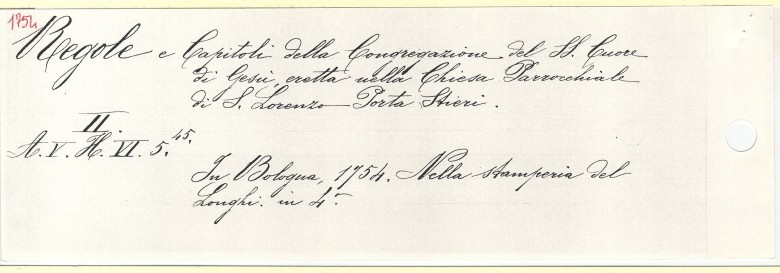 1754
Regole e Capitoli della Congregazione del SS. Cuore
di Gesù, eretta nella Chiesa Parrocchiale
di S. Lorenzo Porta Stieri.
II.
A. V. H. VI. 5. 45.
In Bologna, 1754. Nella stamperia del
Longhi. in 4°.